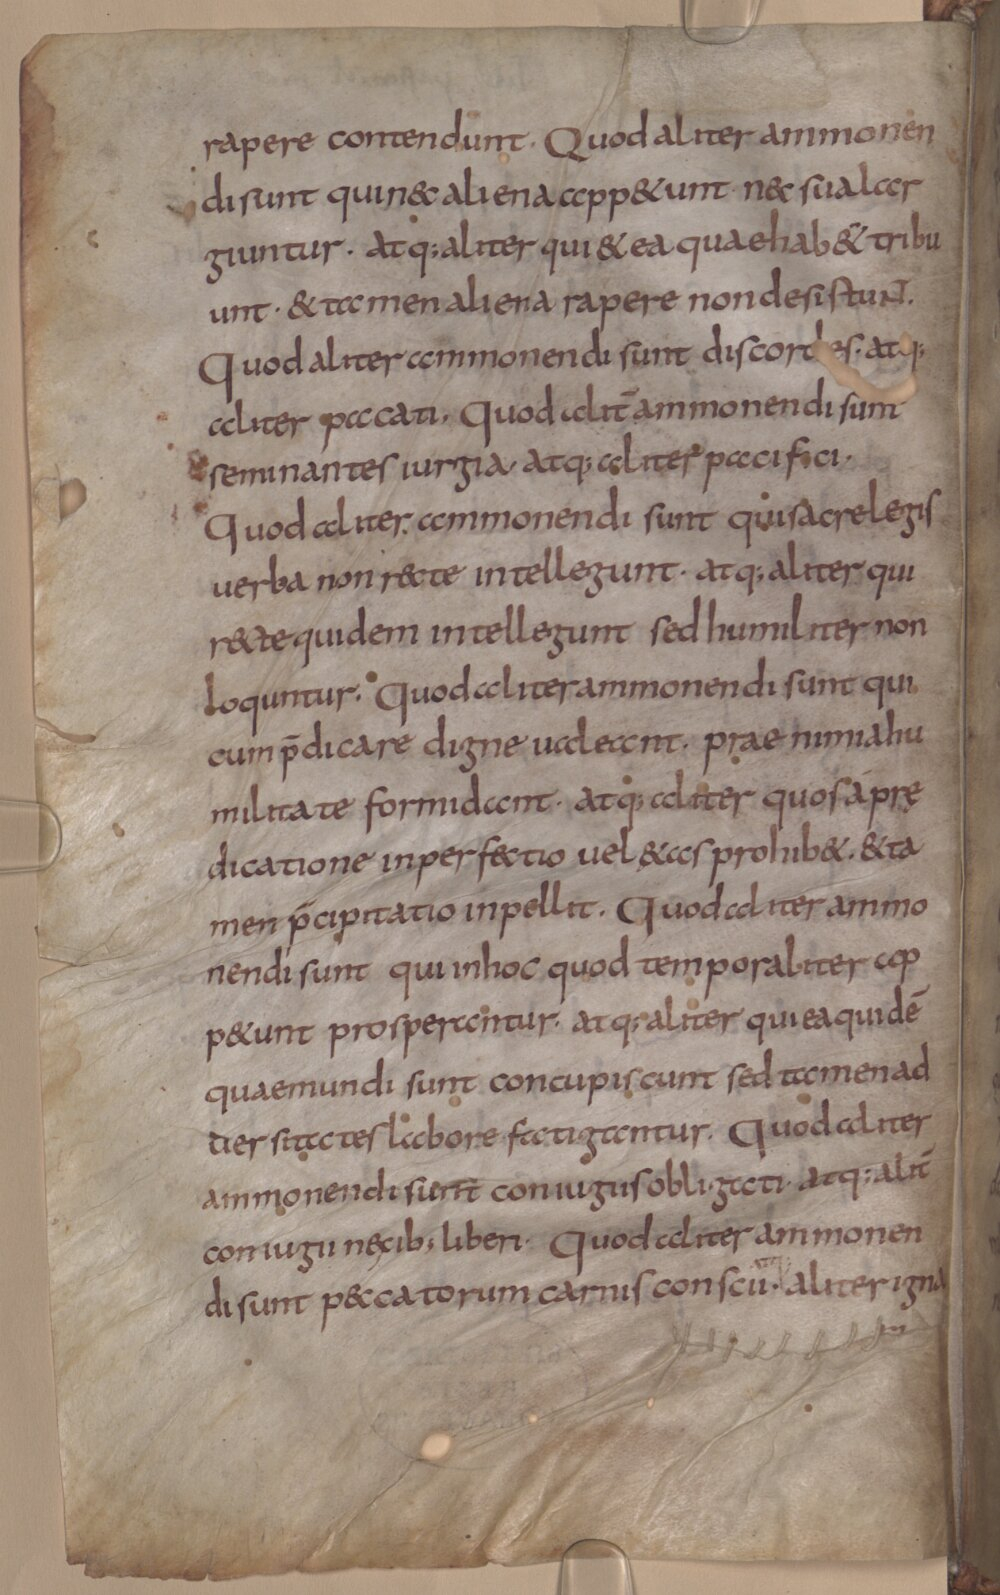 rapere contendunt. Quod aliter ammonen
di sunt qui n&c aliena app&unt nec sua lar
giuntur. atq; aliter qui & ea quae hab&̄ tribu
unt. & tamen aliena rapere non desistunt.
Quod aliter ammonendi sunt discordes. atq;
aliter paccati. Quod alit̄ ammonendi sunt
seminantes iurgia. atq; aliter pacifici.
Quod aliter ammonendi sunt qui sacre legis
verba non recte intellegunt. atq; aliter qui
recte quidem intellegunt sed humiliter non
loquntur. Quod aliter ammonendi sunt qui
cum p̄dicare digne valeant. prae nimia hu
militate formidant. atq; aliter quos a prę
dicatione inperfectio uel &as prohib&. & ta
men p̄cipitatio inpellit. Quod aliter ammo
nendi sunt qui in hoc quod temporaliter ap
p&unt prosperantur. atq; aliter qui ea quidē
quae mundi sunt concupiscunt sed tamen ad
uersitates labore fatigantur. Quod aliter
ammonendi sunt coniugiis obligati. atq; alit̄
coniugii nęxib; liberi. Quod aliter ammonen
di sunt peccatorum carnis conscii. aliter igna